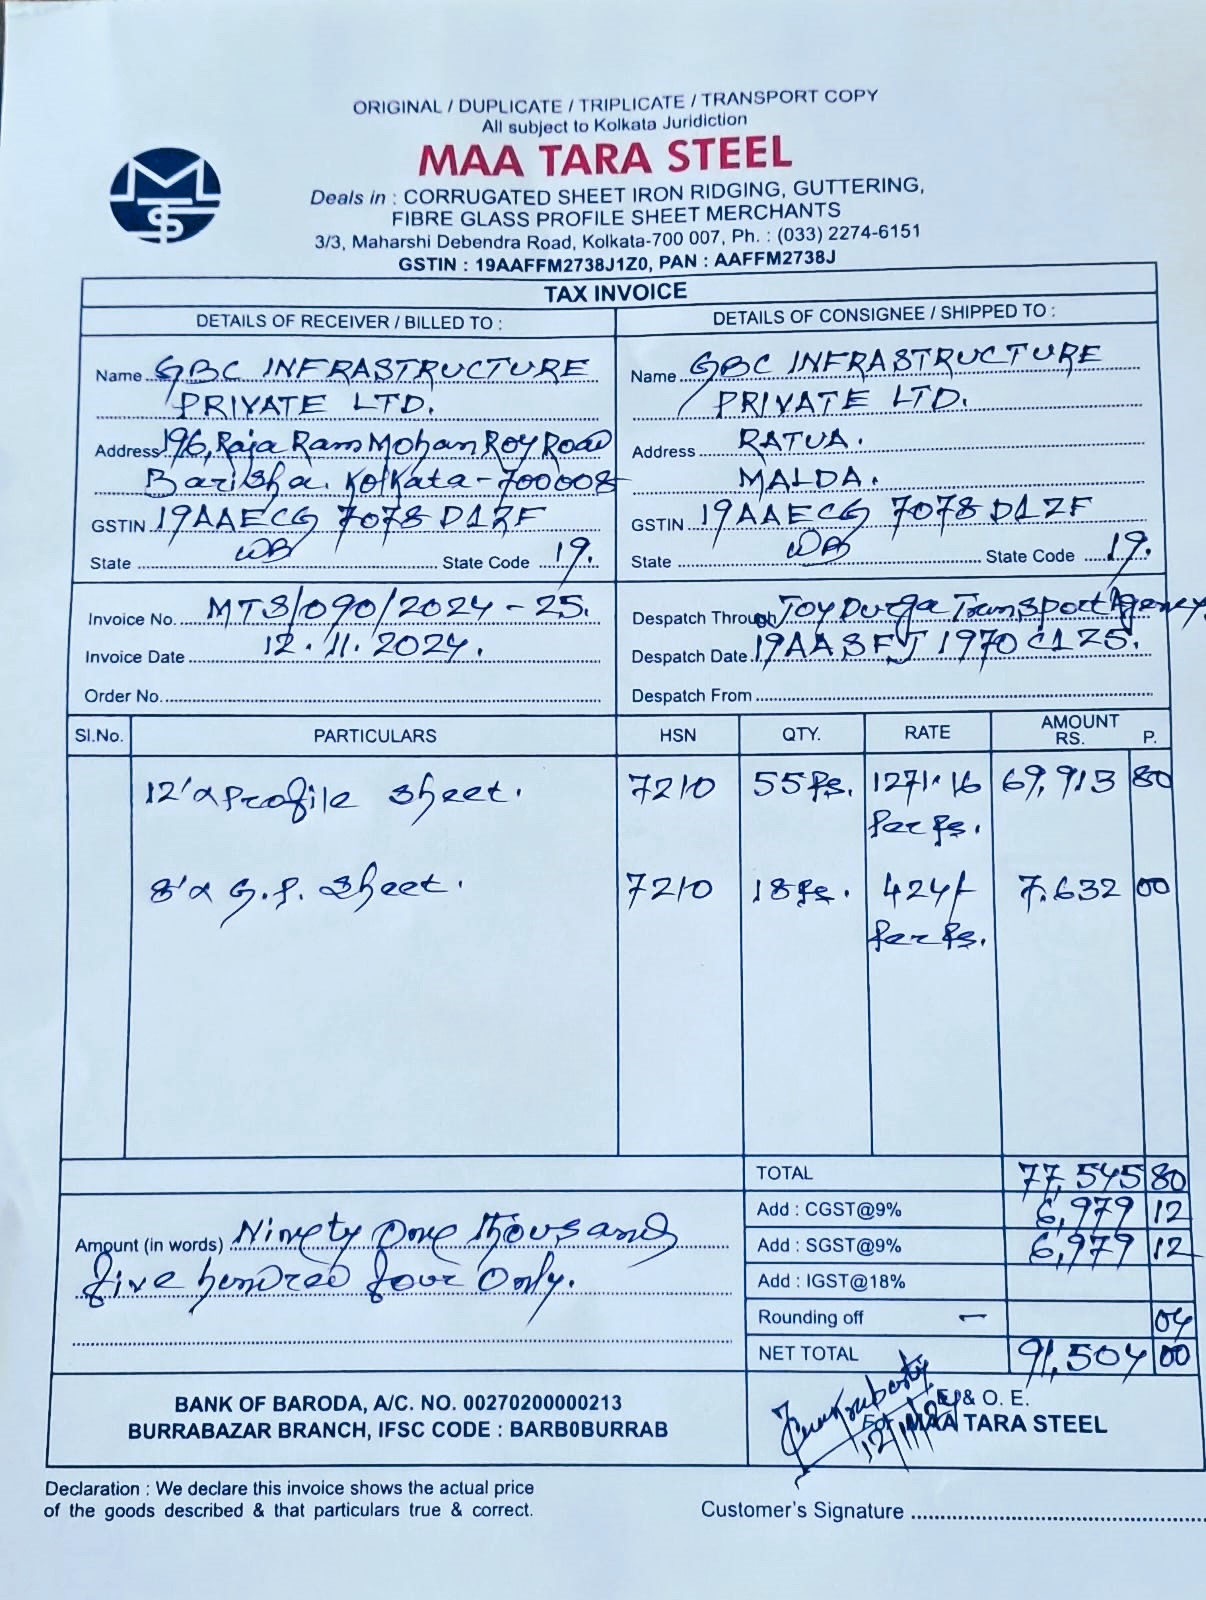 ORIGINAL / DUPLICATE / TRIPLICATE / TRANSPORT COPY
All subject to Kolkata Juridiction
MAA TARA STEEL
Deals in : CORRUGATED SHEET IRON RIDGING, GUTTERING,
FIBRE GLASS PROFILE SHEET MERCHANTS
3/3, Maharshi Debendra Road, Kolkata-700 007, Ph. : (033) 2274-6151
GSTIN : 19AAFFM2738J1Z0, PAN : AAFFM2738J
TAX INVOICE
DETAILS OF RECEIVER / BILLED TO :
Name GBC INFRASTRUCTURE
PRIVATE LTD.
Address 196, Raja Ram Mohan Roy Road
Barisha. Kolkata - 700008
GSTIN 19AAECG 7078 D1ZF
State WB State Code 19.
DETAILS OF CONSIGNEE / SHIPPED TO :
Name GBC INFRASTRUCTURE
PRIVATE LTD.
Address RATUA.
MALDA.
GSTIN 19AAECG 7078 D1ZF
State WB State Code 19.
Invoice No. MTS/090/2024 - 25.
Invoice Date 12. 11. 2024.
Order No.
Despatch Through Joy Durga Transport Agency
Despatch Date 19AASFJ 1970 C1Z5.
Despatch From
Sl.No. PARTICULARS HSN QTY. RATE AMOUNT RS. P.
12' Profile Sheet. 7210 55 Ps. 1271.16 69,913 80
Per Ps.
8' G.P. Sheet. 7210 18 Ps. 424/- 7,632 00
Per Ps.
TOTAL 77,545 80
Add : CGST@9% 6,979 12
Add : SGST@9% 6,979 12
Add : IGST@18%
Rounding off — 04
NET TOTAL 91,504 00
Amount (in words) Ninety One thousand
five hundred four Only.
BANK OF BARODA, A/C. NO. 00270200000213
BURRABAZAR BRANCH, IFSC CODE : BARB0BURRAB
E. & O. E.
For MAA TARA STEEL
Declaration : We declare this invoice shows the actual price
of the goods described & that particulars true & correct.
Customer's Signature